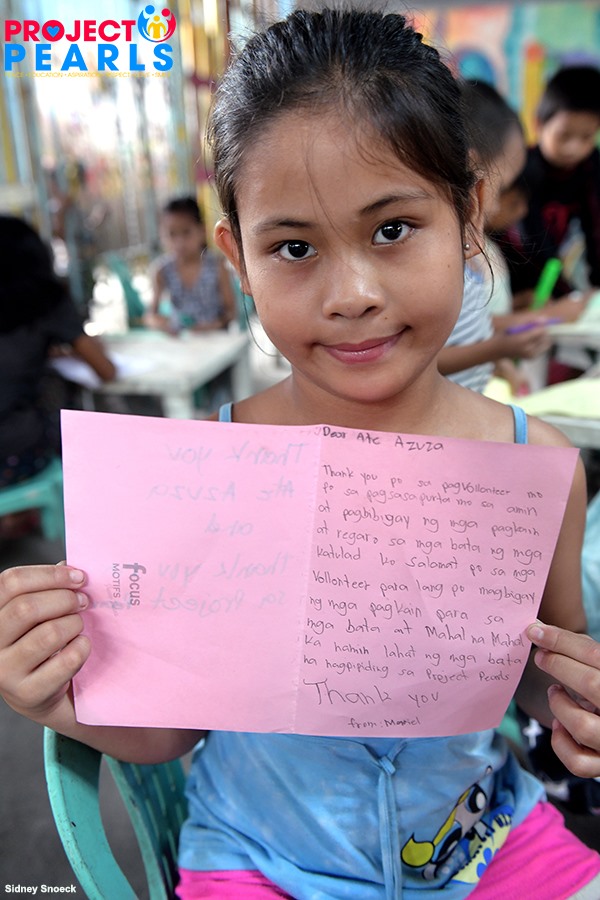 PROJECT
PEARLS
Dear Ate Azuza
Thank you po sa pagvolunteer mo
po sa pagsasapurta mo sa amin
at pagbibigay ng mga pagkain
at regaro sa mga bata ng mga
katulad ko salamat po sa mga
Volunteer para lang po magbigay
ng mga pagkain para sa
mga bata at Mahal na Mahal
ka namin lahat ng mga bata
na nagpipiding sa Project Pearls
Thank you
from: Mariel
Thank you
Ate Azuza
and
Thank you
sa Project
focus
MOTIFS
Sidney Snoeck